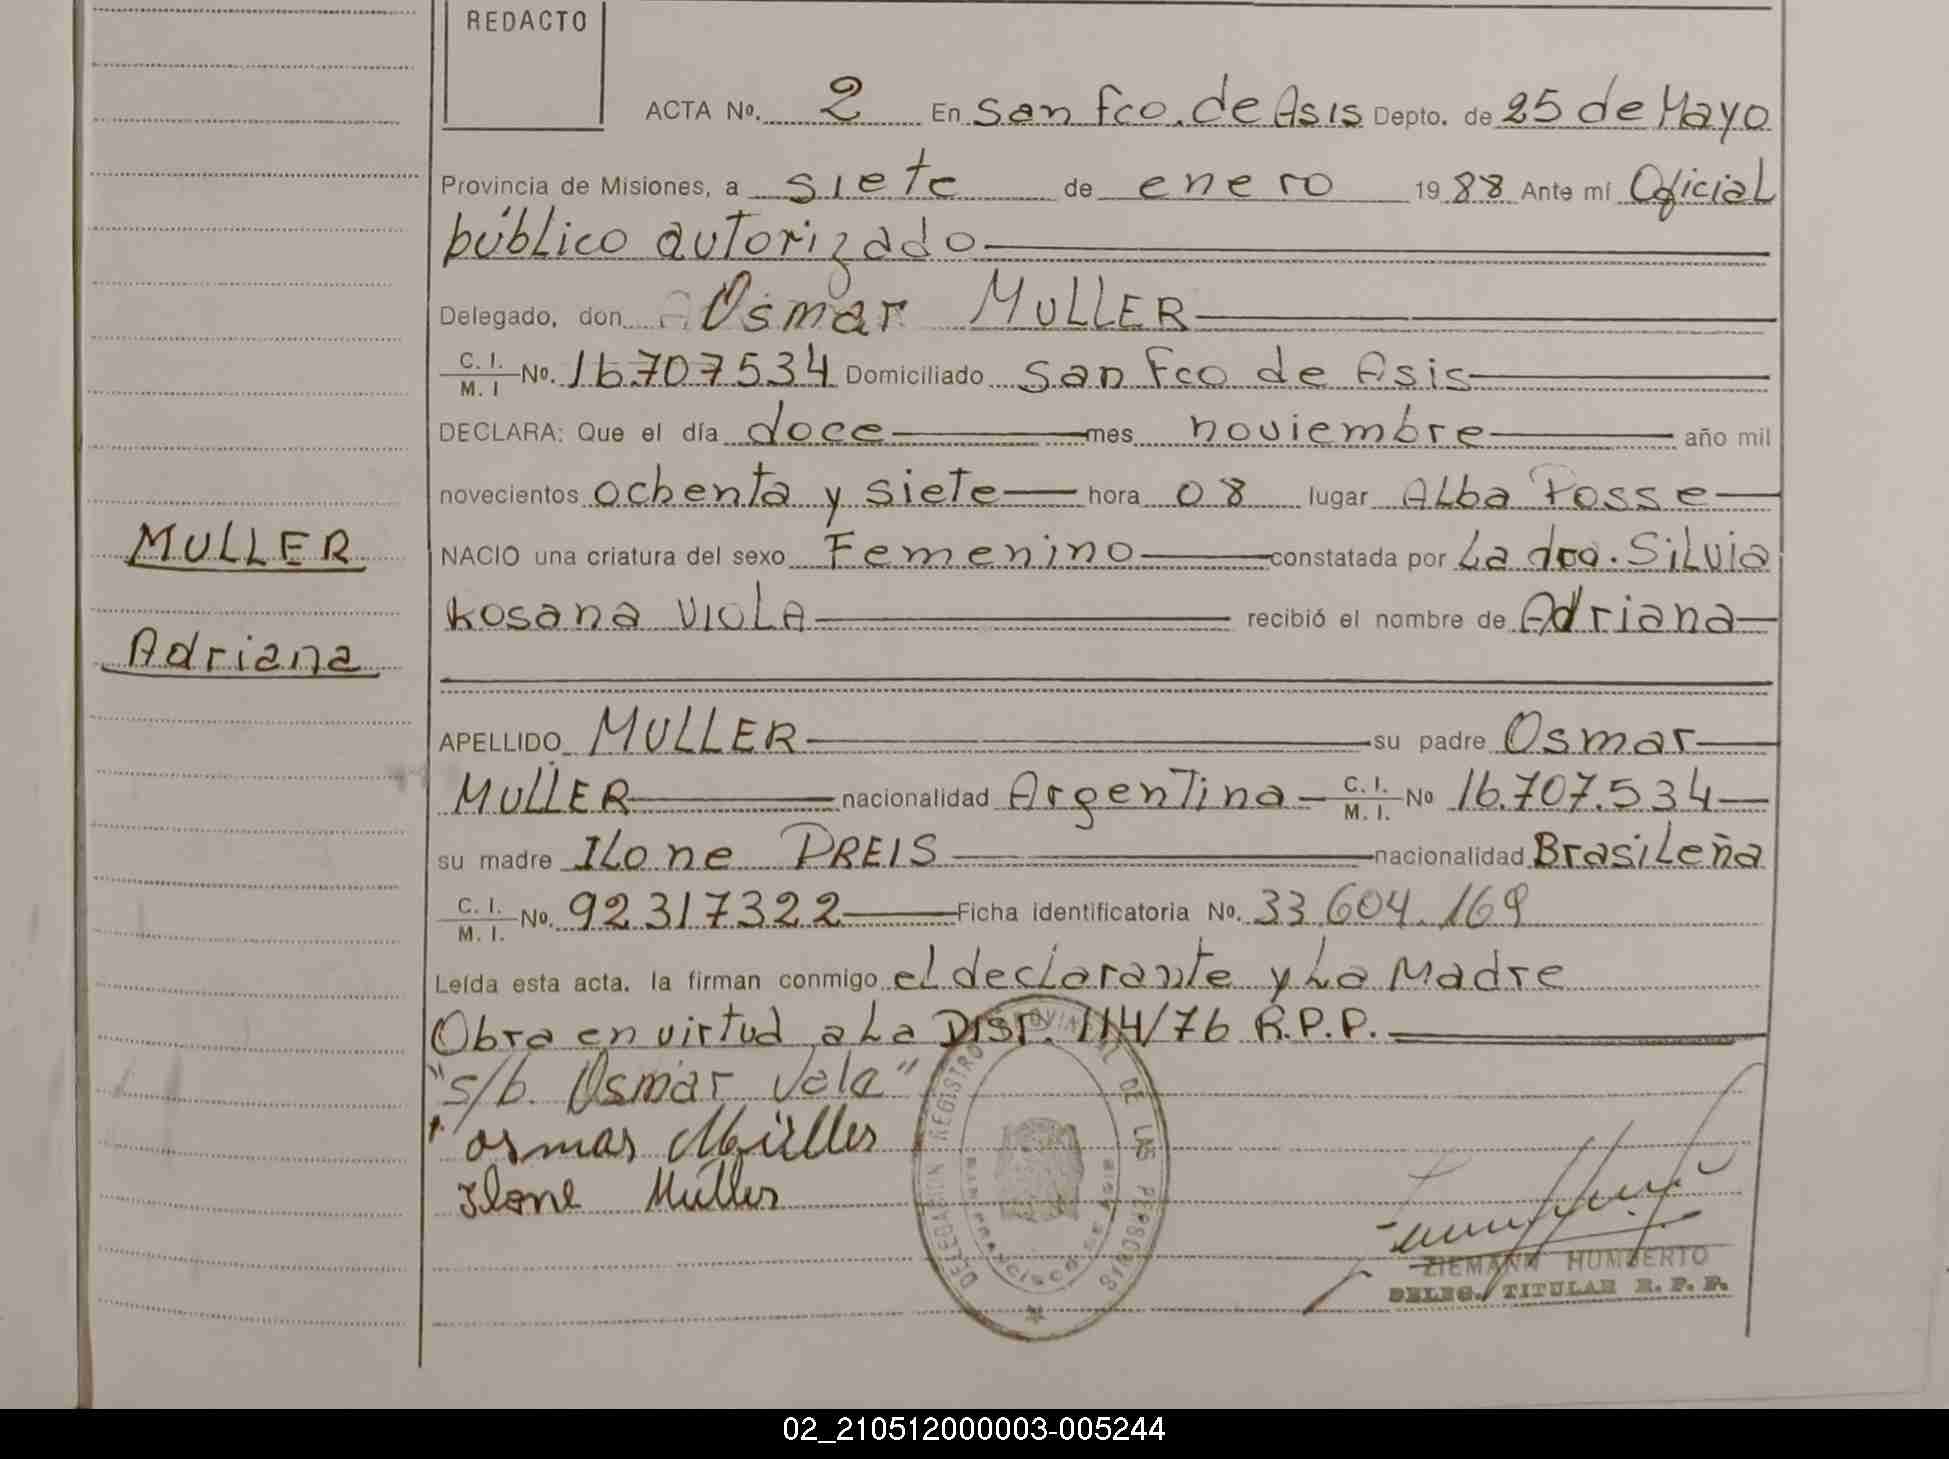 REDACTO
ACTA No. 2 En San Fco. de Asis Depto. de 25 de Mayo
Provincia de Misiones, a siete de enero 1988 Ante mí Oficial
público autorizado
Delegado, don Osmar MULLER
C. I. M. I No. 16.707534 Domiciliado San Fco de Asis
DECLARA: Que el día doce mes noviembre año mil
novecientos ochenta y siete hora 08 lugar Alba Posse
MULLER
NACIO una criatura del sexo Femenino constatada por La dra. Silvia
Rosana VIOLA recibió el nombre de Adriana
Adriana
APELLIDO MULLER su padre Osmar
MULLER nacionalidad Argentina C. I. M. I. No 16.707.534
su madre Ilone PREIS nacionalidad Brasileña
C. I. M. I. No. 92317322 Ficha identificatoria No. 33.604.169
Leída esta acta, la firman conmigo el declarante y La Madre
Obra en virtud a La Disp. 114/76 R.P.P.
"s/b. Osmar Vale"
Osmar Müller
Ilone Müller
DELEGACION REGISTRO PROVINCIAL DE LAS PERSONAS
SAN FRANCISCO DE ASIS
ZIEMANN HUMBERTO
DELEG. TITULAR R. P. P.
02_210512000003-005244